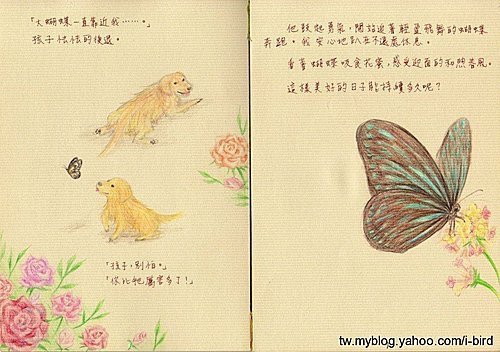 「大蝴蝶一直靠近我……。」
孩子怯怯的後退。
「孩子，別怕。」
「你比牠厲害多了！」
他鼓起勇氣，開始追著輕盈飛舞的蝴蝶
奔跑。我安心地趴在不遠處休息。
看著蝴蝶吸食花蜜，感受迎面的和煦春風。
這樣美好的日子能持續多久呢？
tw.myblog.yahoo.com/i-bird